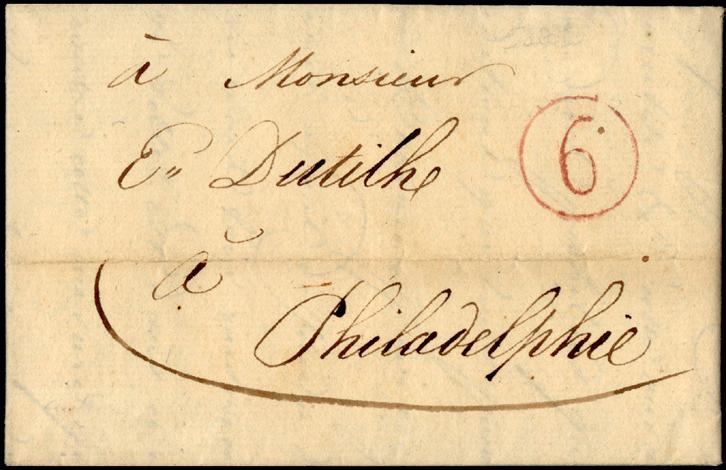 à Monsieur
E'' Dutilh
6
à
Philadelphie